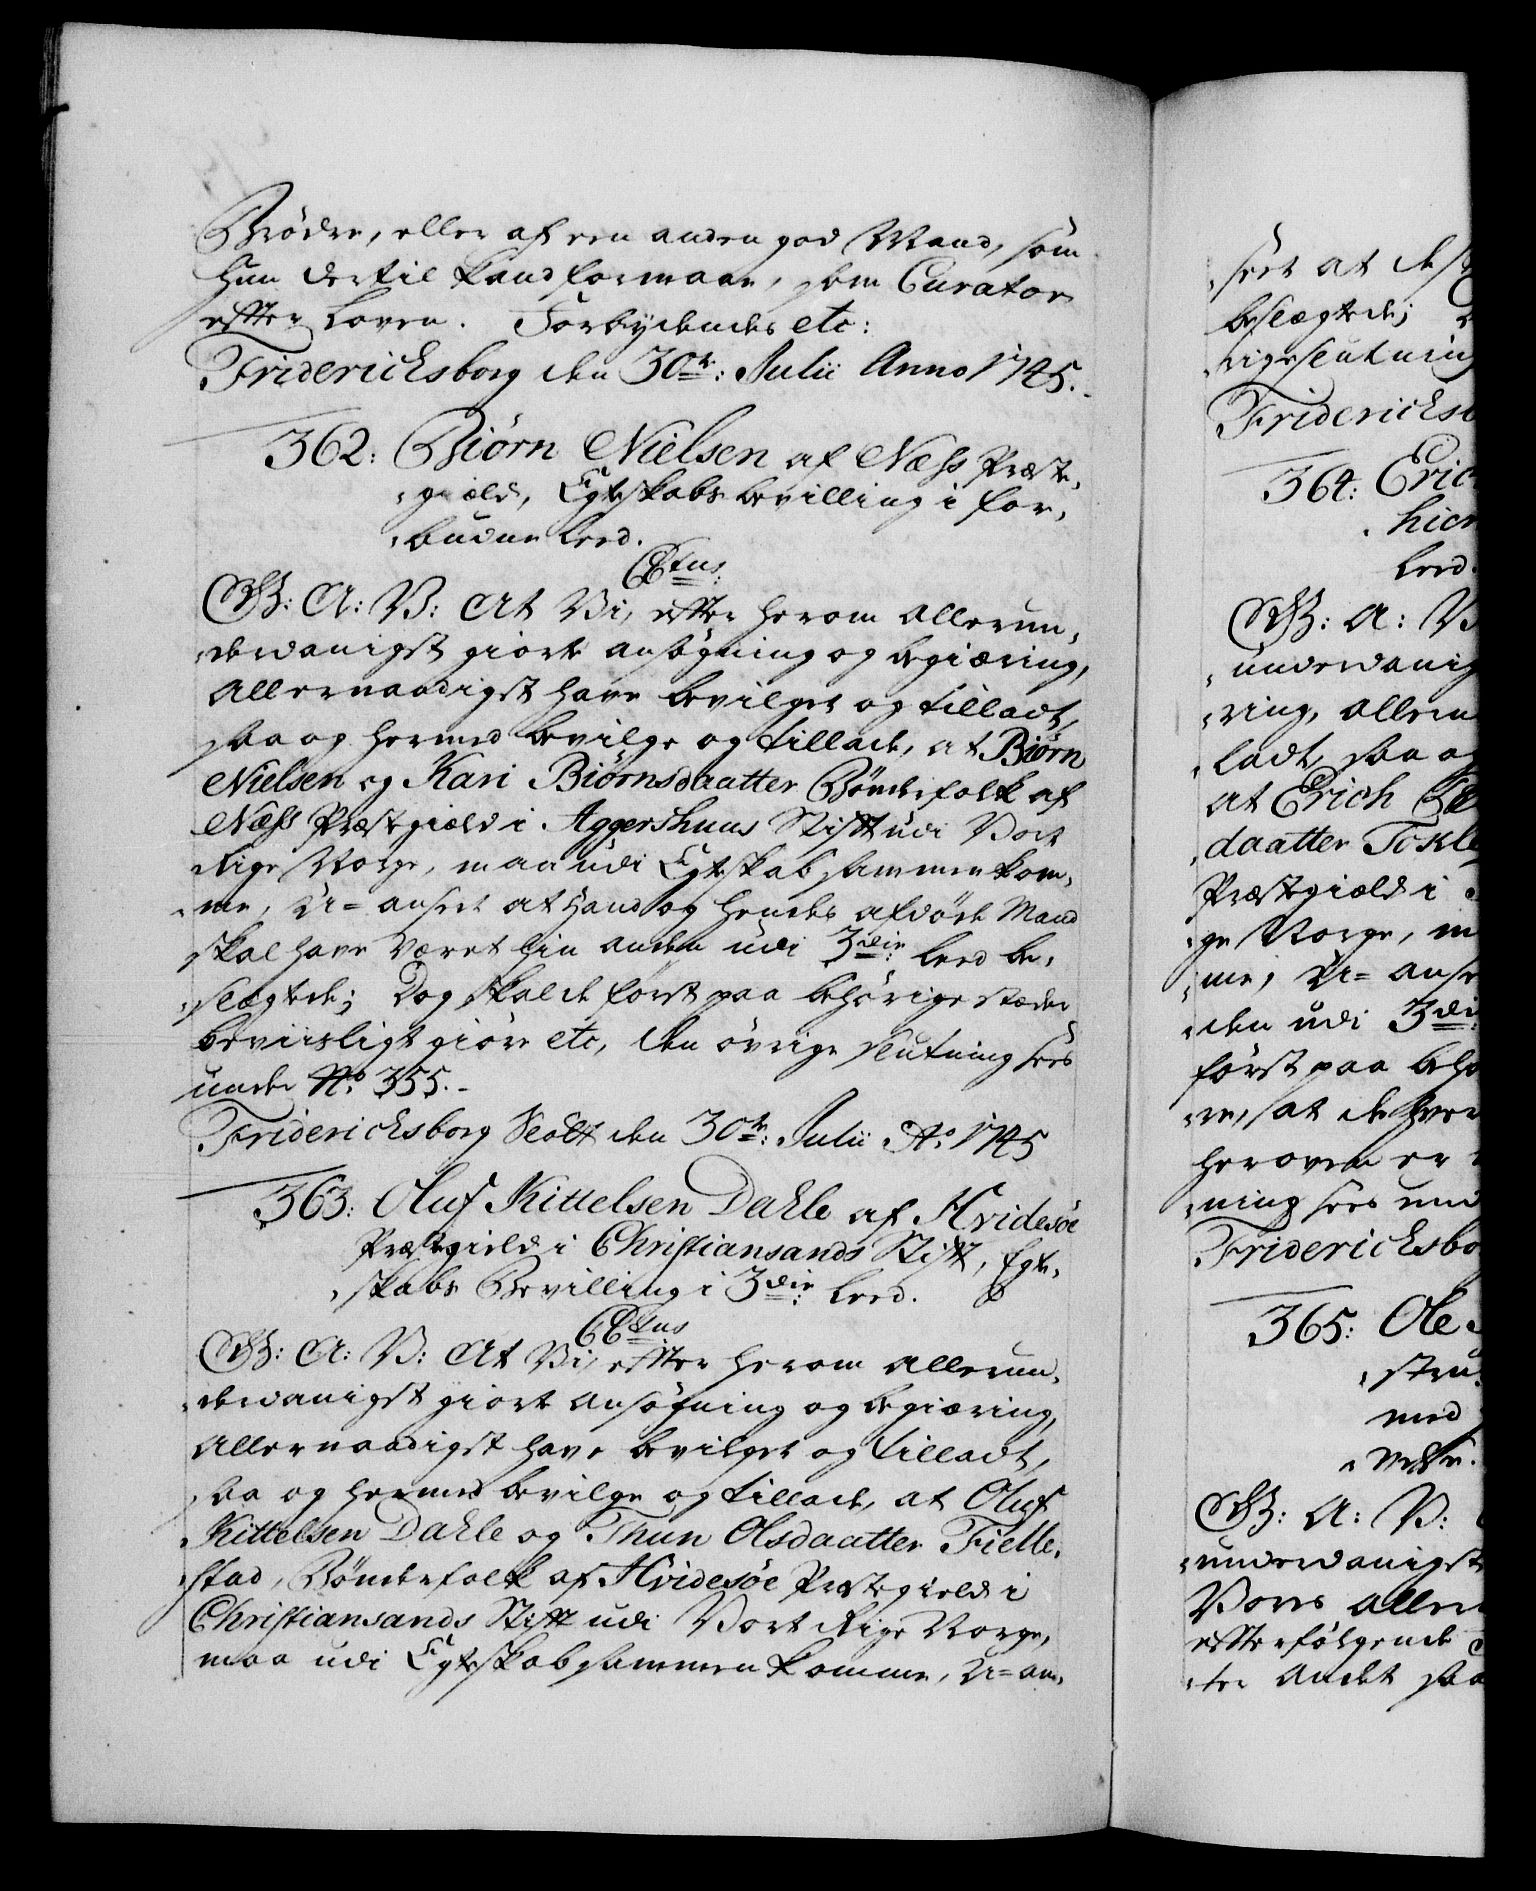 Brödre, eller af een anden god Mand, som
hun dertil kand formaae, som Curator
efter Loven. Forbydendes etc:
Fridericksborg den 30te: Julii Anno 1745.
362: Biörn Nielsen af Næss Præste-
-giæld, Egteskabs bevilling i for-
-budne Leed.
Gr: A: V: At Vi, efter herom allerun-
-derdanigst giorte ansögning og begiæring,
allernaadigst have bevilget og tilladt,
saa og hermed bevilge og tillade, at Biörn
Nielsen og Kari Biörnsdaatter Bönderfolk af
Næss Præstegiæld i Aggershuus Stift udi Vort
Rige Norge, maa udi Egteskab sammenkom-
-me, U-anseet at hand og hendes afdöde Mand
skal have været hin anden udi 3die: Leed be-
-slægtede; Dog skal de først paa behörige stæder
beviisligt giöre etc, den övrige slutning sees
under No. 355.-
Fridericksborg Slott den 30te: Julii Ao. 1745
363: Oluf Kittelsen Dahle af Hvidesöe
Præstegield i Christiansands Stift, Egte-
-skabs Bevilling i 3die: Leed.
Gr: A: V: At Vi, efter herom allerun-
-derdanigst giorte ansögning og begiæring,
allernaadigst have bevilget og tilladt,
saa og hermed bevilge og tillade, at Oluf
Kittelsen Dahle og Thun Olsdaatter Fielle-
-stad, Bönderfolk af Hvidesöe Præstegield i
Christiansands Stift udi Vort Rige Norge,
maa udi Egteskab sammenkomme, U-an-
seet at de
beslægtede;
-rige slutning
Fridericksb
364: Eric
Leed.
Gr: A: V
-underdanig
-ring, allern
-ladt, saa og
at Erich
daatter
Præstegiæld i
-ge Norge, m
-me, U-anse
-den udi 3die:
først paa behö
-re, at de hver
heroven er
-ning sees und
Fridericksbo
365: Ole
med
Gr: A: V:
-underdanigst
Vores aller
efterfölgende
-ter Andet saa